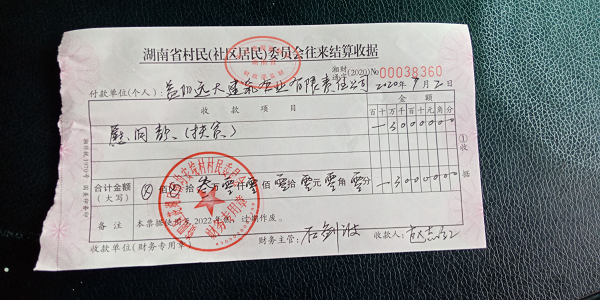 湖南省村民(社区居民)委员会往来结算收据
湘财通字(2020)No 00038360
付款单位(个人): 益阳远大建筑有限责任公司 2020年9月2日
收款项目 金额
百十万千百十元角分
慰问款(扶贫) 3000000
合计金额(大写) ⊗佰⊗拾叁万零仟零佰零拾零元零角零分 3000000
①收据
备注 本票据使用至2022年 过期作废。
收款单位(财务专用章) 财务主管: 收款人:
财务专用章